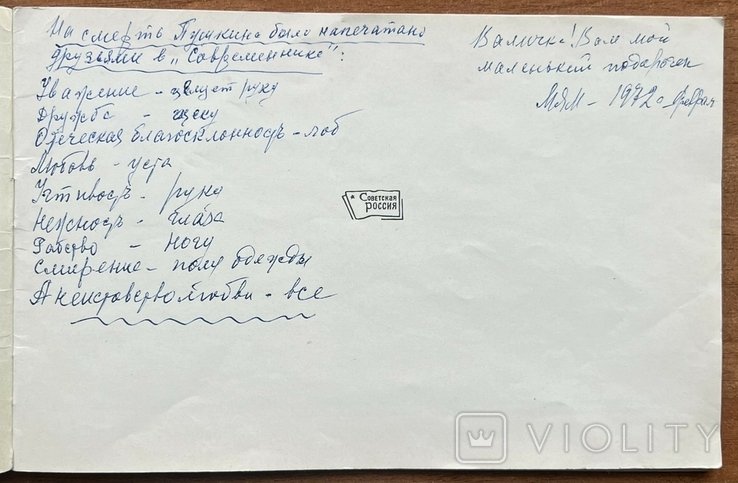 На смерть Пушкина было напечатано
друзьями в „Современнике":
Уважение - целует руку
Дружба - щеку
Отеческая благосклонность - лоб
Любовь - уста
Учтивость - руки
Нежность - глаза
Рабство - ногу
Смирение - полу одежды
А неистовство любви - все
Валичка! Вам мой
маленький подарочек
МЯМ - 1972 февраля
Советская
Россия
VIOLITY